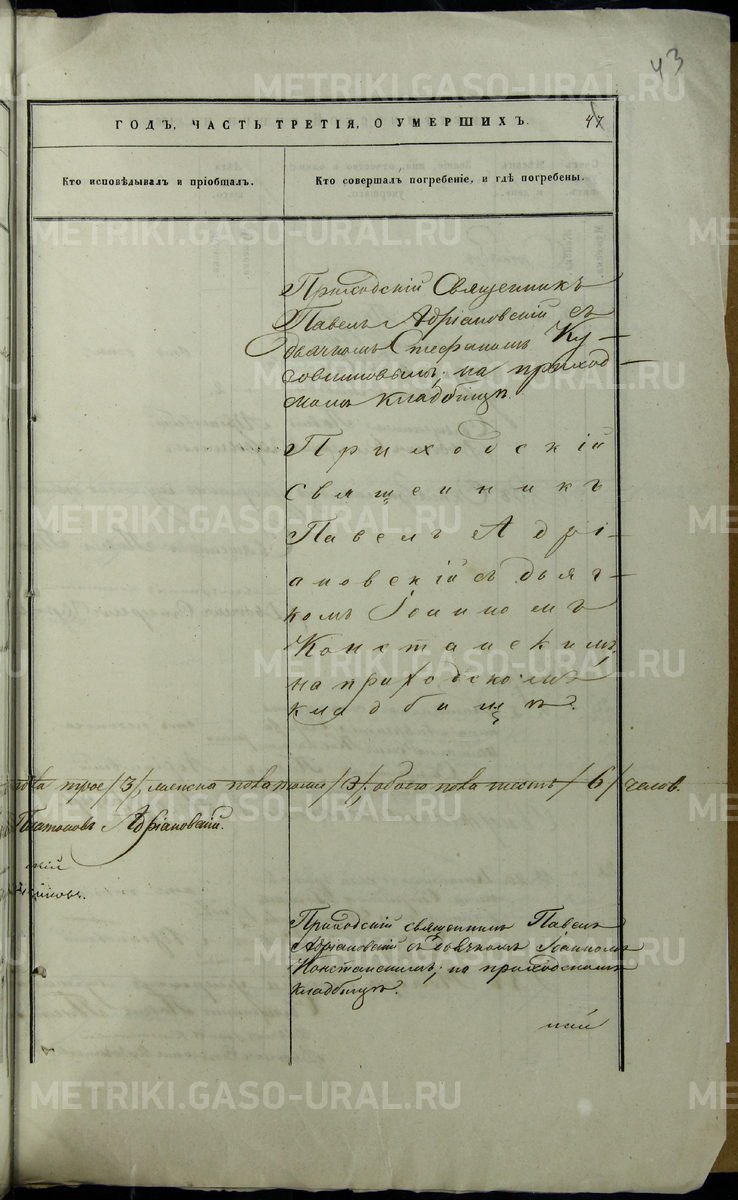 43
ГОДЪ, ЧАСТЬ ТРЕТІЯ, О УМЕРШИХЪ.
Кто исповѣдывалъ и пріобщалъ.
Кто совершалъ погребеніе, и гдѣ погребены.
Приходскій Священникъ
Павелъ Адріановскій съ
дьячкомъ Стефаномъ Ку-
совниковымъ, на приход-
скомъ кладбищѣ.
Приходскій
Священникъ
Павелъ Адрі-
ановскій съ дьяч-
комъ Іоанномъ
Констанскимъ,
на приходскомъ
кладбищѣ.
пола трое /3/, женска пола трое /3/, обоего пола шесть /6/ челов.
Платоновъ Адріановскій.
скій
Приходскій священникъ Павелъ
Адріановскій съ дьячкомъ Іоанномъ
Констанскимъ, на приходскомъ
кладбищѣ.
METRIKI.GASO-URAL.RU